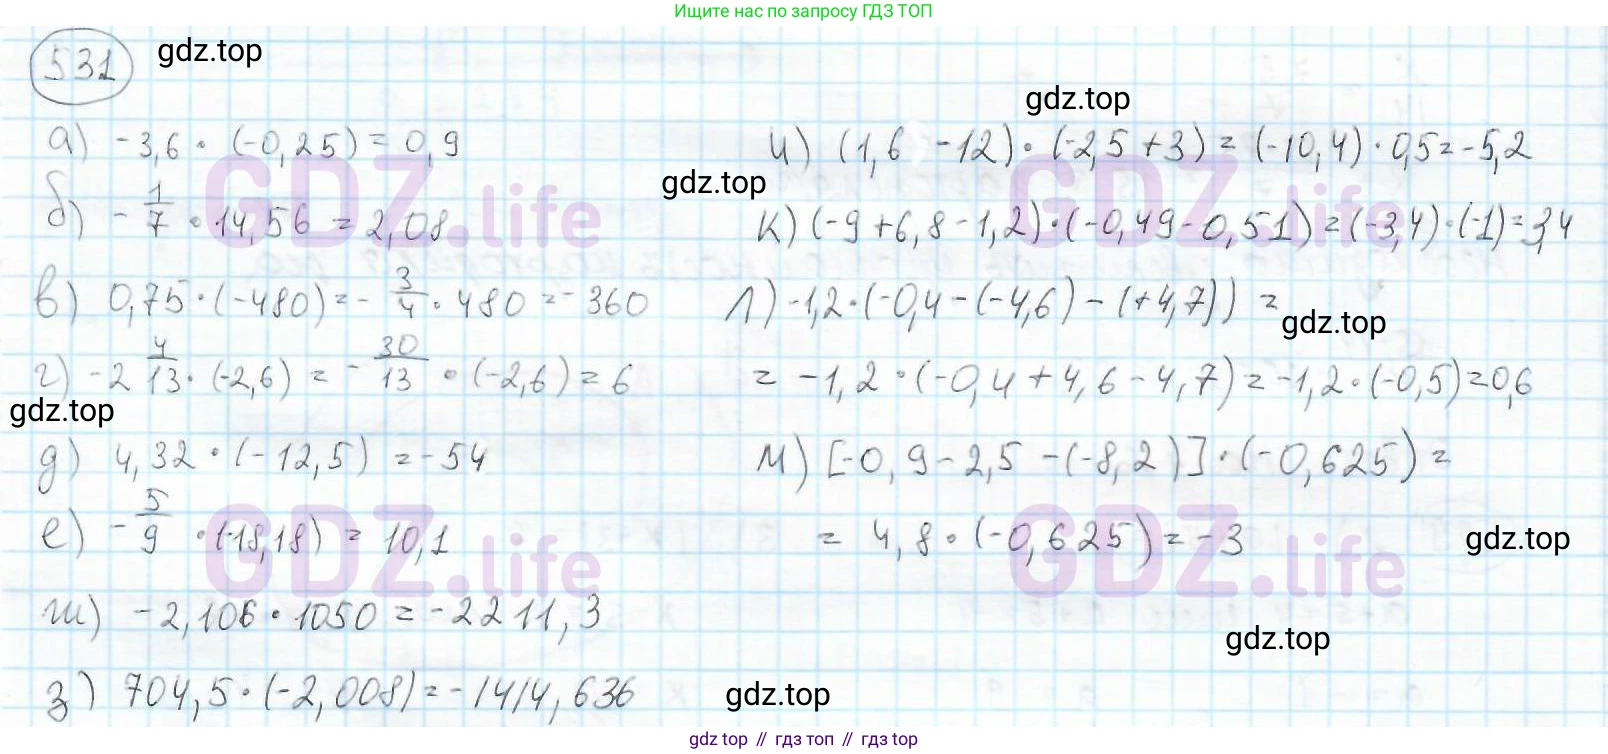 Ищите нас по запросу ГДЗ ТОП
531
gdz.top
а) -3,6 · (-0,25) = 0,9
б) - 1/7 · 14,56 = 2,08
в) 0,75 · (-480) = - 3/4 · 480 = -360
г) -2 4/13 · (-2,6) = - 30/13 · (-2,6) = 6
gdz.top
д) 4,32 · (-12,5) = -54
е) - 5/9 · (-18,18) = 10,1
ж) -2,106 · 1050 = -2211,3
з) 704,5 · (-2,008) = -1414,636
gdz.top
и) (1,6 -12) · (-2,5 +3) = (-10,4) · 0,5 = -5,2
gdz.top
к) (-9 +6,8 -1,2) · (-0,49 -0,51) = (-3,4) · (-1) = 3,4
л) -1,2 · (-0,4 - (-4,6) - (+4,7)) =
gdz.top
= -1,2 · (-0,4 + 4,6 - 4,7) = -1,2 · (-0,5) = 0,6
м) [-0,9 - 2,5 - (-8,2)] · (-0,625) =
= 4,8 · (-0,625) = -3
gdz.top
gdz.top
gdz.top
GDZ.life
GDZ.life
GDZ.life
GDZ.life
gdz top // гдз топ // гдз top